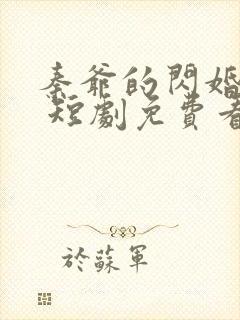 秦爺的閃婚
短劇免費看
於蘇軍